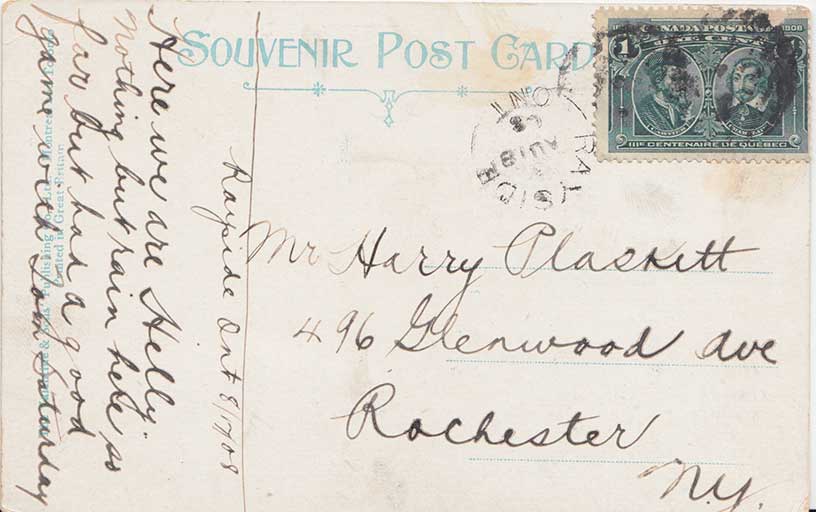 SOUVENIR POST CARD
CANADA POSTAGE
1908
1
CARTIER
CHAMPLAIN
IIIE CENTENAIRE DE QUÉBEC
RAYSIDE
AU 18
08
ONT
Here we are Helly.
Nothing but rain here so
far but had a good
game with Tom Saturday
Rayside Ont 8/17/08
Publishing Co. Ltd. Montreal
Printed in Great Britain
Mr Harry Plaskett
496 Glenwood Ave
Rochester
N.Y.